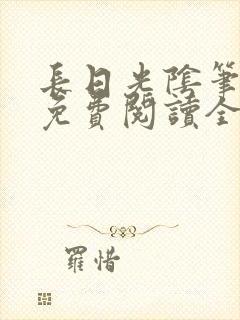 長日光陰筆
免費閱讀全
羅惜